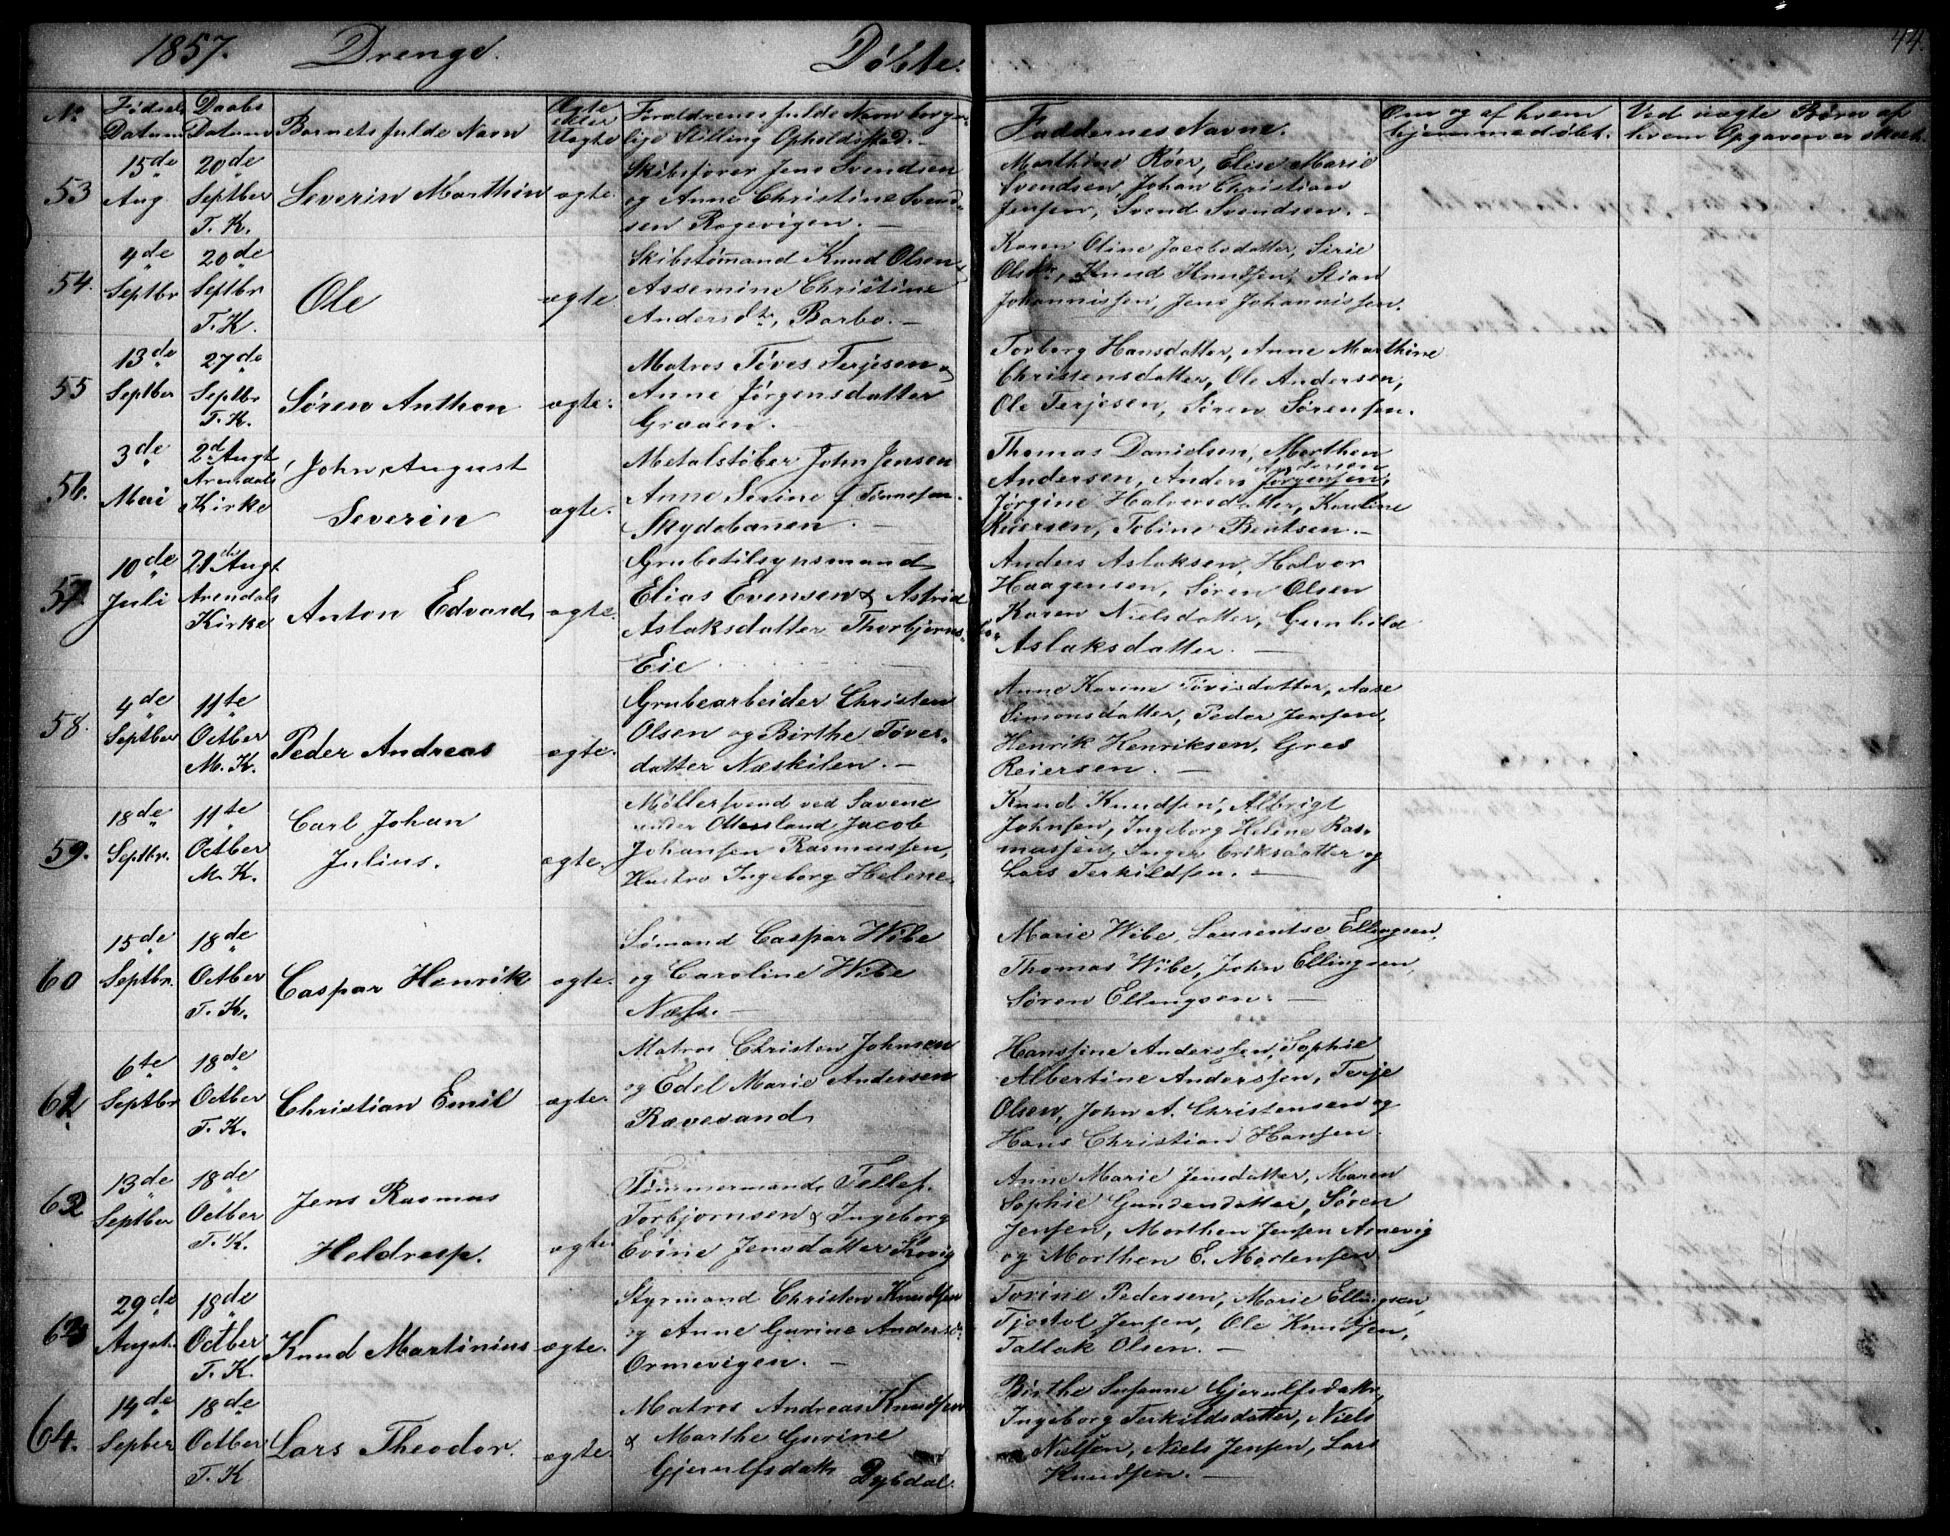 1857. Drenge Døbte. 44.
No Fødsels Datum Daabs Datum Barnets fulde Navn Ægte eller Uægte Forældrenes fulde Navn borger-
lige Stilling Opholdsted.
Faddernes Navne. Om og af hvem hjemmedøbt. Ved uægte Børn af hvem Opgaven er skeet.
53 15de Aug. 20de Septber T. K. Severin Marthin ægte
Skibsfører Jens Svendsen
og Anne Christine Svend-
sen Rægevigen. —
Marthine Röer, Elise Marie
Svendsen, Johan Christian
Jensen, Svend Svendsen. —
54. 4de Septbr 20de Septbr T. K. Ole ægte
Skibstømmand Knud Olsen &
Assemine Christine
Andersdtr, Barbo. —
Karen Oline Jacobsdatter, Sirie
Olsdtr, Knud Knudsen, Stian
Johannissen, Jens Johannissen.
55 13de Septber 27de Septbr T. K. Søren Anthon ægte.
Matros Töves Terjesen &
Anne Jörgensdatter
Graaen. —
Torborg Hansdatter, Anne Marthine
Christensdatter, Ole Andersen,
Ole Terjesen, Søren Sørensen.
56. 3de Mai 2d Augt Arendals Kirke John, August
Severin ægte.
Metalstøber John Jensen
Anne Serine f. Tønnesen.
Skydebanen. —
Thomas Danielsen, Morthen
Andersen, Anders Jørgensen, Andersen
Jørgine Halvorsdatter, Karoline
Reiersen, Tobine Bentsen. —
57. 10de Juli 21de Augt Arendals Kirke Anton Edvard ægte.
Grubetilsynsmand
Elias Evensen & Astrid
Aslaksdatter Thorbjørns-
Eie
Anders Aslaksen, Halvor
Haagensen, Søren Olsen
Karen Nielsdatter, Gunhild
Aslaksdatter. —
58. 4de Septber 11te Octber M. K. Peder Andreas ægte.
Grubearbeider Christen
Olsen og Birthe Töves-
datter Næskilen. —
Anne Karine Tövisdatter, Aase
Simonsdatter, Peder Jensen,
Henrik Henriksen, Gres
Reiersen. —
59. 18de Septbr. 11te Octber M. K. Carl Johan
Julius. ægte.
Møllersvend ved Savene
under Ottersland Jacob
Johansen Rasmussen,
Hustro Ingeborg Helene.
Knud Knudsen, Albrigt
Johnsen, Ingeborg Helene Ras-
mussen, Inger Eriksdatter og
Lars Terkildsen. —
60 15de Septbr. 18de Octber T. K. Caspar Henrik ægte.
Sømand Caspar Wibe
og Caroline Wibe
Næss. —
Marie Wibe, Laurentse Ellingsen,
Thomas Wibe, John Ellingsen,
Søren Ellingsen. —
61. 6te Septbr 18de Octber T. K. Christian Emil ægte.
Matros Christen Johnsen
og Edel Marie Andersen
Rævesand
Hansine Anderssen, Sophie
Albertine Anderssen, Terje
Olsen, John A. Christensen og
Hans Christian Hansen.
62 13de Septber 18de Octber T. K. Jens Rasmus
Heldresp. ægte
Tømmermand Tellef
Torbjornsen & Ingeborg
Evine Jensdatter Kovig
Anne Marie Jensdatter, Maren
Sophie Gundersdatter, Søren
Jensen, Morthen Jensen Arnevig
og Morthen E. Mortensen
63 29de Augst. 18de Octber T. K. Knud Martinius ægte.
Styrmand Christen Knudsen
og Anne Gurine Anders
Ormevigen. —
Torine Pedersen, Marie Ellingsen,
Tjostol Jensen, Ole Knudsen,
Tallak Olsen. —
64. 14de Sepber 18de Octber T. K Lars Theodor. ægte.
Matros Andreas Knudsen
& Marthe Gurine
Gjerulfsdatr Dybdal.
Birthe Susanne Gjerulfsdatr,
Ingeborg Terkildsdatter, Niels
Nielsen, Niels Jensen, Lars
Knudsen. —